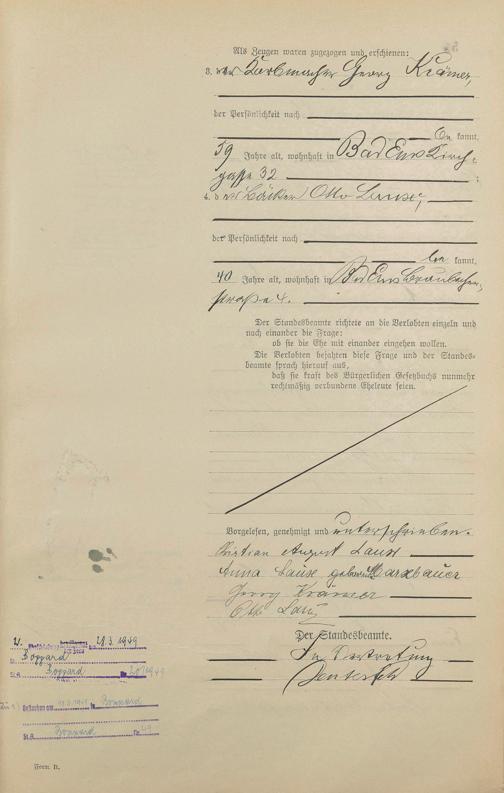 Als Zeugen waren zugezogen und erschienen:
3. der Korbmacher Georg Krämer,
der Persönlichkeit nach
be kannt,
59 Jahre alt, wohnhaft in Bad Ems Kirch-
gasse 32
4. der Bäcker Otto Lause,
der Persönlichkeit nach
be kannt,
40 Jahre alt, wohnhaft in Bad Ems Braubacher-
straße 4.
Der Standesbeamte richtete an die Verlobten einzeln und
nach einander die Frage:
ob sie die Ehe mit einander eingehen wollen.
Die Verlobten bejahten diese Frage und der Standes-
beamte sprach hierauf aus,
daß sie kraft des Bürgerlichen Gesetzbuchs nunmehr
rechtmäßig verbundene Eheleute seien.
Vorgelesen, genehmigt und unterschrieben.
Kristian August Lause
Anna Lause geborene
Georg Krämer
Otto Lause
Der Standesbeamte.
In Vertretung
1. 21.3.1949
Boppard
St.A. Boppard Nr.
Gestorben am in Boppard
St.A. Boppard Nr.
Form. B.